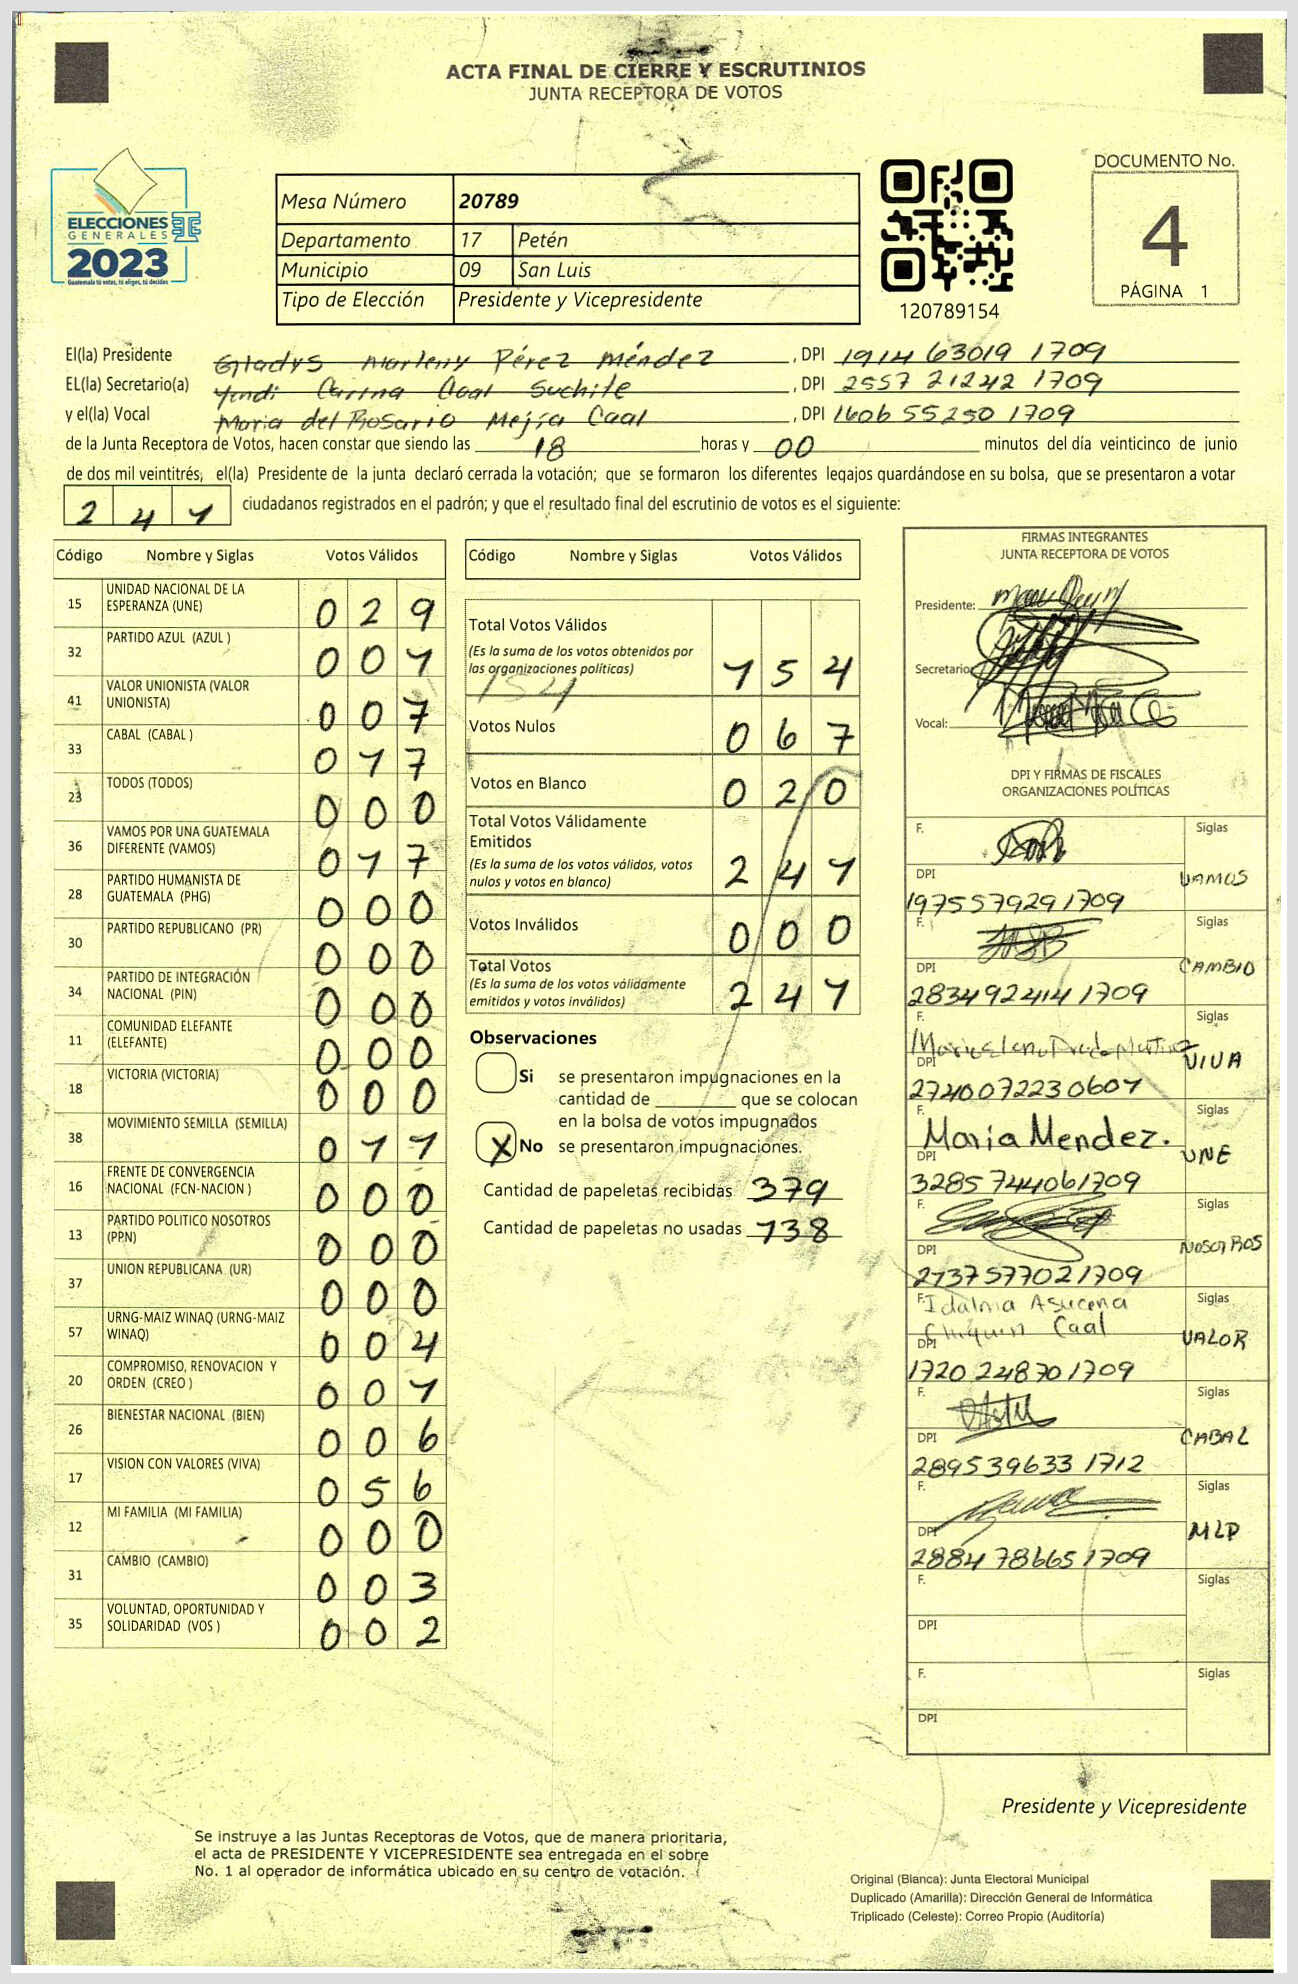 ACTA FINAL DE CIERRE Y ESCRUTINIOS
JUNTA RECEPTORA DE VOTOS
ELECCIONES
GENERALES
2023
Guatemala tú votas, tú eliges, tú decides
Mesa Número 20789
Departamento 17 Petén
Municipio 09 San Luis
Tipo de Elección Presidente y Vicepresidente
120789154
DOCUMENTO No.
4
PÁGINA 1
El(la) Presidente Gladys Marleny Pérez Méndez, DPI 1914 63019 1709
EL(la) Secretario(a) Yendi Carina Caal Suchite, DPI 2557 21242 1709
y el(la) Vocal Maria del Rosario Mejía Caal, DPI 1606 55250 1709
de la Junta Receptora de Votos, hacen constar que siendo las 18 horas y 00 minutos del día veinticinco de junio
de dos mil veintitrés, el(la) Presidente de la junta declaró cerrada la votación; que se formaron los diferentes legajos guardándose en su bolsa, que se presentaron a votar
241 ciudadanos registrados en el padrón; y que el resultado final del escrutinio de votos es el siguiente:
Código Nombre y Siglas Votos Válidos
15 UNIDAD NACIONAL DE LA ESPERANZA (UNE) 029
32 PARTIDO AZUL (AZUL ) 001
41 VALOR UNIONISTA (VALOR UNIONISTA) 007
33 CABAL (CABAL ) 017
23 TODOS (TODOS) 000
36 VAMOS POR UNA GUATEMALA DIFERENTE (VAMOS) 017
28 PARTIDO HUMANISTA DE GUATEMALA (PHG) 000
30 PARTIDO REPUBLICANO (PR) 000
34 PARTIDO DE INTEGRACIÓN NACIONAL (PIN) 000
11 COMUNIDAD ELEFANTE (ELEFANTE) 000
18 VICTORIA (VICTORIA) 000
38 MOVIMIENTO SEMILLA (SEMILLA) 011
16 FRENTE DE CONVERGENCIA NACIONAL (FCN-NACION ) 000
13 PARTIDO POLITICO NOSOTROS (PPN) 000
37 UNION REPUBLICANA (UR) 000
57 URNG-MAIZ WINAQ (URNG-MAIZ WINAQ) 004
20 COMPROMISO, RENOVACION Y ORDEN (CREO ) 001
26 BIENESTAR NACIONAL (BIEN) 006
17 VISION CON VALORES (VIVA) 056
12 MI FAMILIA (MI FAMILIA) 000
31 CAMBIO (CAMBIO) 003
35 VOLUNTAD, OPORTUNIDAD Y SOLIDARIDAD (VOS ) 002
Código Nombre y Siglas Votos Válidos
Total Votos Válidos 154
(Es la suma de los votos obtenidos por
las organizaciones políticas)
154
Votos Nulos 067
Votos en Blanco 020
Total Votos Válidamente
Emitidos 241
(Es la suma de los votos válidos, votos
nulos y votos en blanco)
Votos Inválidos 000
Total Votos 241
(Es la suma de los votos válidamente
emitidos y votos inválidos)
Observaciones
Si se presentaron impugnaciones en la
cantidad de ______ que se colocan
en la bolsa de votos impugnados
X No se presentaron impugnaciones.
Cantidad de papeletas recibidas 379
Cantidad de papeletas no usadas 138
FIRMAS INTEGRANTES
JUNTA RECEPTORA DE VOTOS
Presidente:
Secretario:
Vocal:
DPI Y FIRMAS DE FISCALES
ORGANIZACIONES POLÍTICAS
F. Siglas
DPI VAMOS
1975579291709
F. Siglas
DPI CAMBIO
2834924141709
F. Siglas
DPI VIVA
2740072230601
F. Maria Mendez. Siglas
DPI UNE
3285744061709
F. Siglas
DPI NOSOTROS
2137577021709
F. Idalmia Asucena Siglas
Chiquin Caal
DPI VALOR
1720 248701709
F. Siglas
DPI CABAL
289539633 1712
F. Siglas
DPI MLP
2884786651709
F. Siglas
DPI
F. Siglas
DPI
Presidente y Vicepresidente
Se instruye a las Juntas Receptoras de Votos, que de manera prioritaria,
el acta de PRESIDENTE Y VICEPRESIDENTE sea entregada en el sobre
No. 1 al operador de informática ubicado en su centro de votación.
Original (Blanca): Junta Electoral Municipal
Duplicado (Amarilla): Dirección General de Informática
Triplicado (Celeste): Correo Propio (Auditoría)